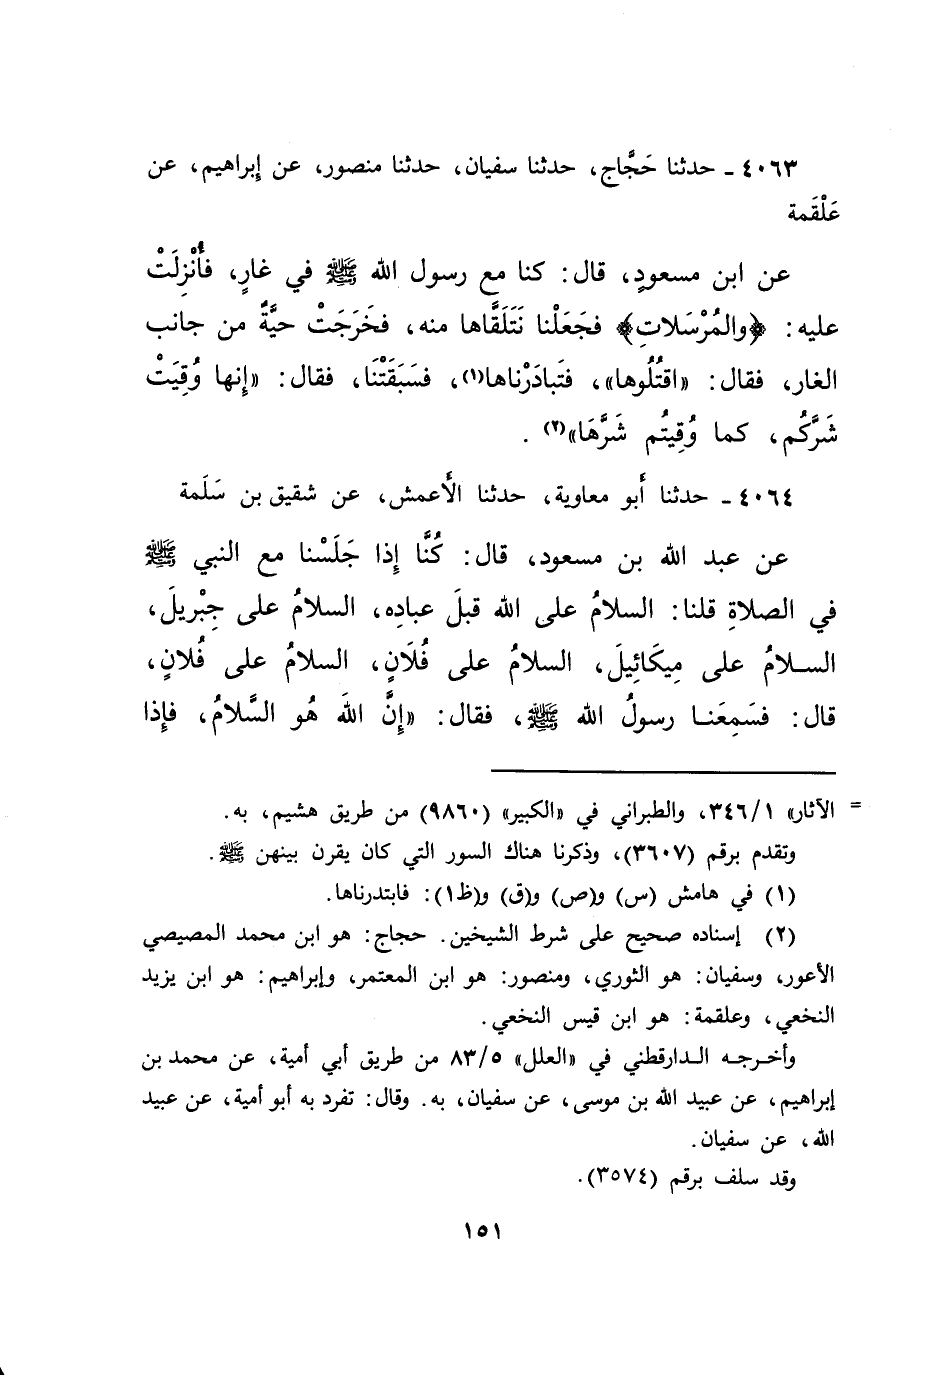 ٤٠٦٣ - حدثنا حَجَّاج، حدثنا سفيان، حدثنا منصور، عن إبراهيم، عن
عَلْقَمة
عن ابن مسعودٍ، قال: كنا مع رسول الله ﷺ في غارٍ، فأُنْزِلَتْ
عليه: ﴿والمُرْسَلاتِ﴾ فجَعَلْنا نَتَلَقَّاها منه، فخَرَجَتْ حيَّةٌ من جانب
الغار، فقال: «اقتُلُوها»، فتَبادَرْناها(١)، فسَبَقَتْنَا، فقال: «إِنها وُقِيَتْ
شَرَّكُم، كما وُقِيتُم شَرَّهَا»(٢) .
٤٠٦٤ - حدثنا أَبو معاوية، حدثنا الأَعمش، عن شقيق بن سَلَمة
عن عبد الله بن مسعود، قال: كُنَّا إِذا جَلَسْنا مع النبي ﷺ
في الصلاةِ قلنا: السلامُ على الله قبلَ عباده، السلامُ على جِبْريلَ،
السلامُ على مِيكَائِيلَ، السلامُ على فُلَانٍ، السلامُ على فُلانٍ،
قال: فسَمِعَنا رسولُ الله ﷺ، فقال: «إِنَّ اللهَ هُو السَّلامُ، فإِذا
= الآثار» ٣٤٦/١، والطبراني في «الكبير» (٩٨٦٠) من طريق هشيم، به.
وتقدم برقم (٣٦٠٧)، وذكرنا هناك السور التي كان يقرن بينهن ﷺ.
(١) في هامش (س) و(ص) و(ق) و(ظ١): فابتدرناها.
(٢) إسناده صحيح على شرط الشيخين. حجاج: هو ابن محمد المصيصي
الأعور، وسفيان: هو الثوري، ومنصور: هو ابن المعتمر، وإبراهيم: هو ابن يزيد
النخعي، وعلقمة: هو ابن قيس النخعي.
وأخرجه الدارقطني في «العلل» ٨٣/٥ من طريق أبي أمية، عن محمد بن
إبراهيم، عن عبيد الله بن موسى، عن سفيان، به. وقال: تفرد به أبو أمية، عن عبيد
الله، عن سفيان.
وقد سلف برقم (٣٥٧٤).
١٥١